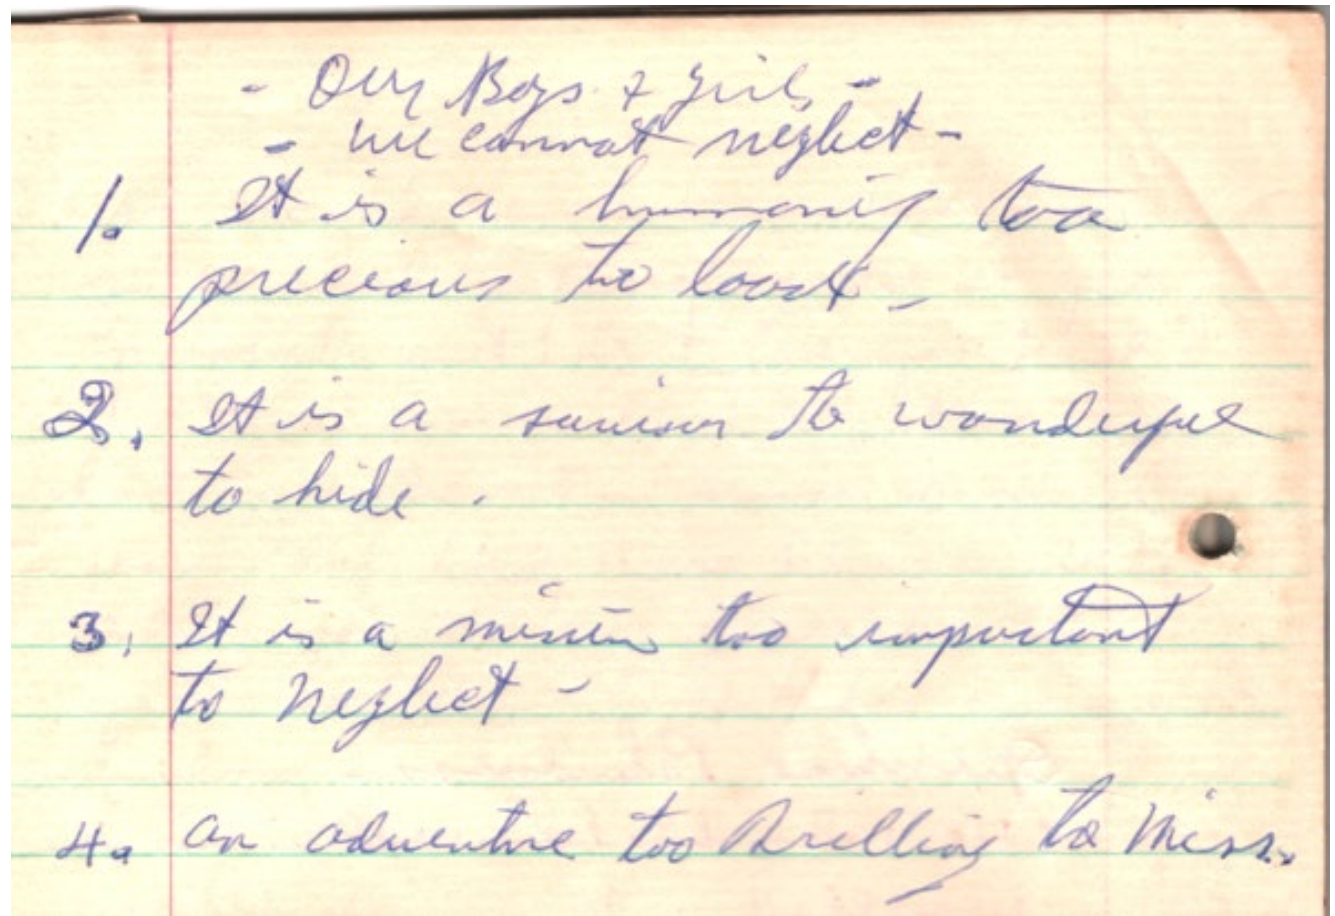 - Our Boys & Girls -
- We cannot neglect -
1. It is a humanity too
precious to
2. It is a to wonderful
to hide.
3. It is a mission too important
to neglect -
4. an adventure too thrilling to miss.